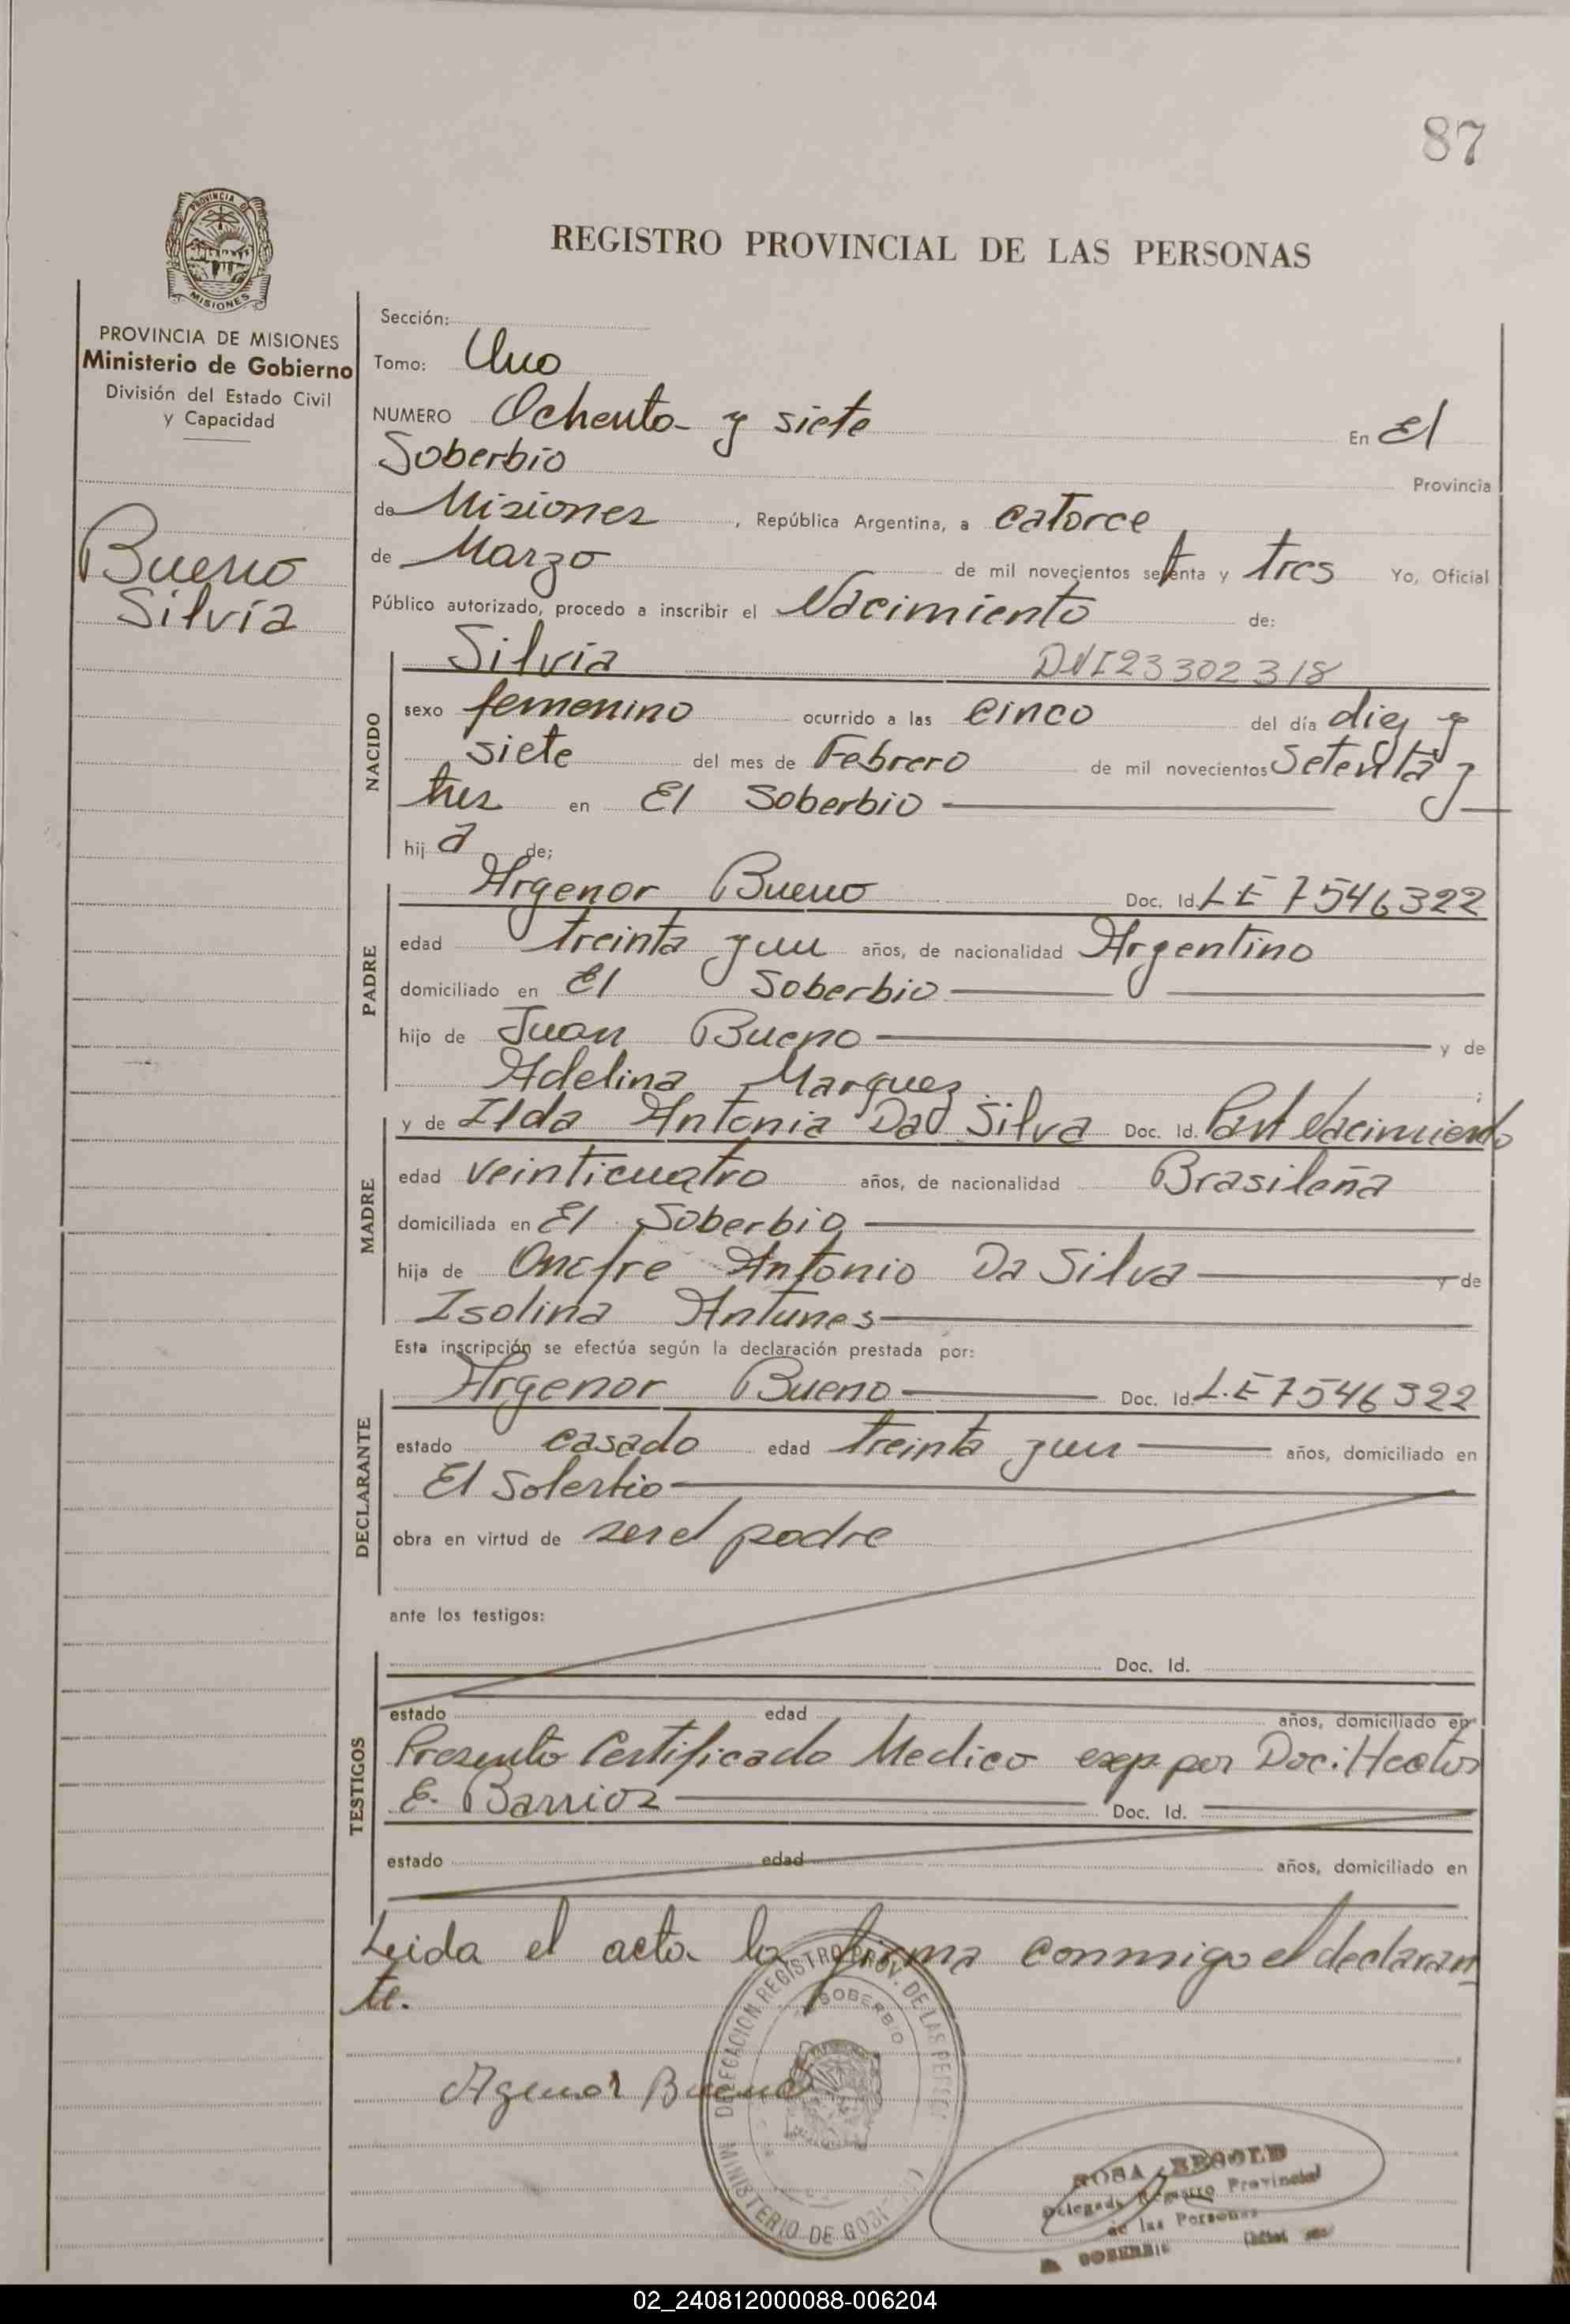 87
REGISTRO PROVINCIAL DE LAS PERSONAS
PROVINCIA DE MISIONES
Ministerio de Gobierno
División del Estado Civil
y Capacidad
Bueno
Silvia
Sección:
Tomo: Uno
NUMERO Ochenta y siete En El
Soberbio Provincia
de Misiones, República Argentina, a catorce
de Marzo de mil novecientos setenta y tres Yo, Oficial
Público autorizado, procedo a inscribir el Nacimiento de:
NACIDO
Silvia DNI 23302318
sexo femenino ocurrido a las cinco del día diez y
siete del mes de Febrero de mil novecientos Setenta y
tres en El Soberbio
hij a de;
PADRE
Argenor Bueno Doc. Id. L E 7546322
edad treinta y un años, de nacionalidad Argentino
domiciliado en El Soberbio
hijo de Juan Bueno y de
Adelina Marquez ;
MADRE
y de Ilda Antonia Da Silva Doc. Id. Part Nacimiento
edad veinticuatro años, de nacionalidad Brasileña
domiciliada en El Soberbio
hija de Onofre Antonio Da Silva y de
Isolina Antunes
Esta inscripción se efectúa según la declaración prestada por:
DECLARANTE
Argenor Bueno Doc. Id. L.E 7546322
estado casado edad treinta y un años, domiciliado en
El Soberbio
obra en virtud de ser el padre
ante los testigos:
TESTIGOS
Doc. Id.
estado edad años, domiciliado en
Presento Certificado Medico exp. por Doc. Hector
E. Barrios Doc. Id.
estado edad años, domiciliado en
Leida el acta la firma conmigo el declaran
te.
DELEGACION REGISTRO PROV. DE LAS PERSO
SOBERBIO
MINISTERIO DE GOBI
Agenor Bueno
ROSA
Delegada Registro Provincial
de las Personas
SOBERBIO
02_240812000088-006204